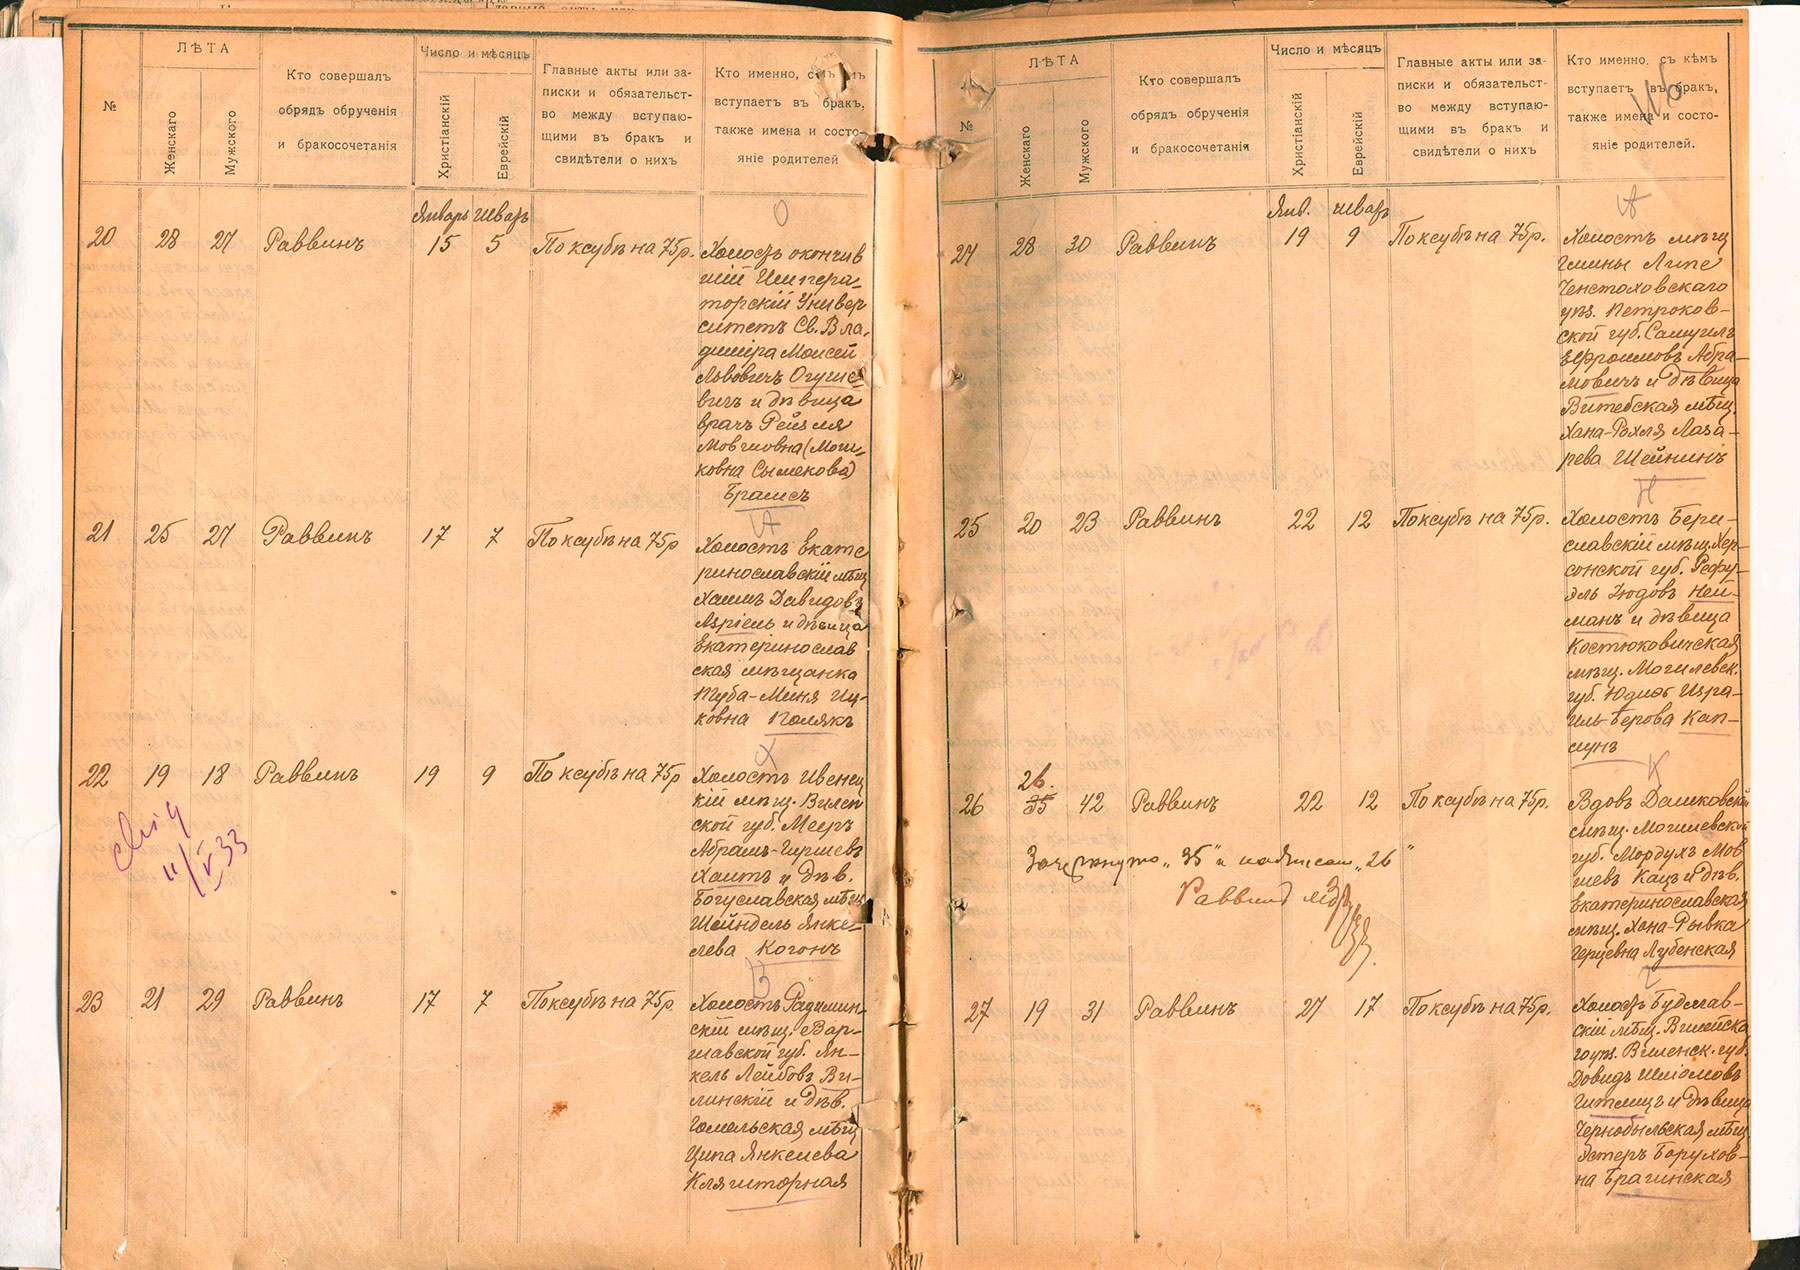 №
ЛѢТА
Женскаго
Мужского
Кто совершалъ
обрядъ обрученія
и бракосочетанія
Число и мѣсяцъ
Христіанскій
Еврейскій
Главные акты или за-
писки и обязательст-
во между вступаю-
щими въ бракъ и
свидѣтели о нихъ
Кто именно, съ
вступаетъ въ бракъ,
также имена и состо-
яніе родителей
Январь Шватъ
20 28 27 Раввинъ 15 5 По ксубѣ на 75р.
Холостъ окончив
шій Импера-
торскій Универ
ситетъ Св. Вла-
диміра Моисей
Львовичъ Огуше
вичъ и дѣвица
врачъ Рейзля
Мовшовна (Мош-
ковна Сымекова)
Брамсъ
21 25 27 Раввинъ 17 7 По ксубѣ на 75р
Холостъ Екате
ринославскій мѣщ
Хаимъ Давидовъ
Азріель и дѣвица
Екатеринослав
ская мѣщанка
Туба-Меня Иц-
ковна Полякъ
22 19 18 Раввинъ 19 9 По ксубѣ на 75р
Холостъ Ивенец
кій мѣщ. Вилен
ской губ. Мееръ
Абрамъ-Гиршевъ
Хаитъ и дѣв.
Богуславская мѣщ
Шейндель Янке-
лева Когонъ
11/V 33
23 21 29 Раввинъ 17 7 По ксубѣ на 75р.
Холостъ Радимин-
скій мѣщ. Вар-
шавской губ. Ян-
кель Лейбовъ Ви-
линскій и дѣв.
Гомельская мѣщ
Ципа Янкелева
Кляшторная
116
№
ЛѢТА
Женскаго
Мужского
Кто совершалъ
обрядъ обрученія
и бракосочетанія
Число и мѣсяцъ
Христіанскій
Еврейскій
Главные акты или за-
писки и обязательст-
во между вступаю-
щими въ бракъ и
свидѣтели о нихъ
Кто именно, съ кѣмъ
вступаетъ въ бракъ,
также имена и состо-
яніе родителей.
Янв. Шватъ
24 28 30 Раввинъ 19 9 По ксубѣ на 75р.
Холостъ мѣщ
Гмины Липе
Ченстоховскаго
уѣз. Петроков-
ской губ. Самуилъ
Ефроимовъ Абра-
мовичъ и дѣвица
Витебская мѣщ.
Хана-Рохля Лаза-
рева Шейнинъ
25 20 23 Раввинъ 22 12 По ксубѣ на 75р.
Холостъ Бери-
славскій мѣщ. Хер-
сонской губ. Рефу-
эль Іюдовъ Ней-
манъ и дѣвица
Костюковичская
мѣщ. Могилевск.
губ. Юдись Изра-
иль-Берова Кап-
лунъ
26.
26 35 42 Раввинъ 22 12 По ксубѣ на 75р.
Вдовъ Дашковскій
мѣщ. Могилевской
губ. Мордухъ Мов
шевъ Кацъ и дѣв.
Екатеринославская
мѣщ. Хана-Рывка
Герцевна Лубенская
Зачеркнуто „35" и надписан „26"
Раввинъ
27 19 31 Раввинъ 27 17 По ксубѣ на 75р.
Холостъ Будслав-
скій мѣщ. Вилейска
го уѣз. Виленск. губ.
Довидъ Шліомовъ
Гитлицъ и дѣвица
Чернобыльская мѣщ
Эстеръ Борухов-
на Брагинская